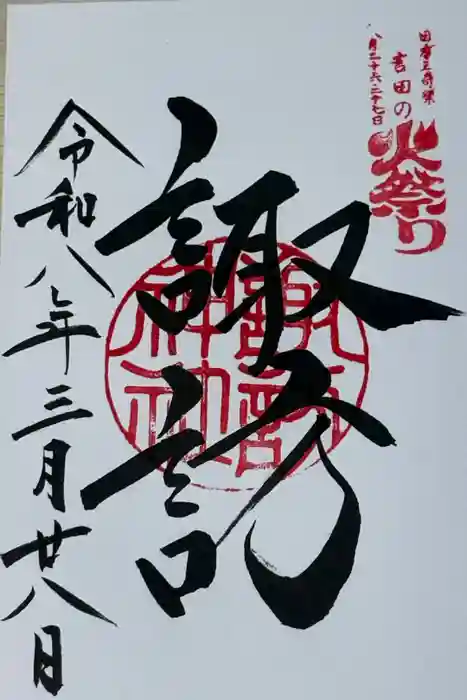 国指定奇祭
八月二十六・二十七日
吉田の
火祭り
諏訪
諏訪
神社
令和八年三月廿八日